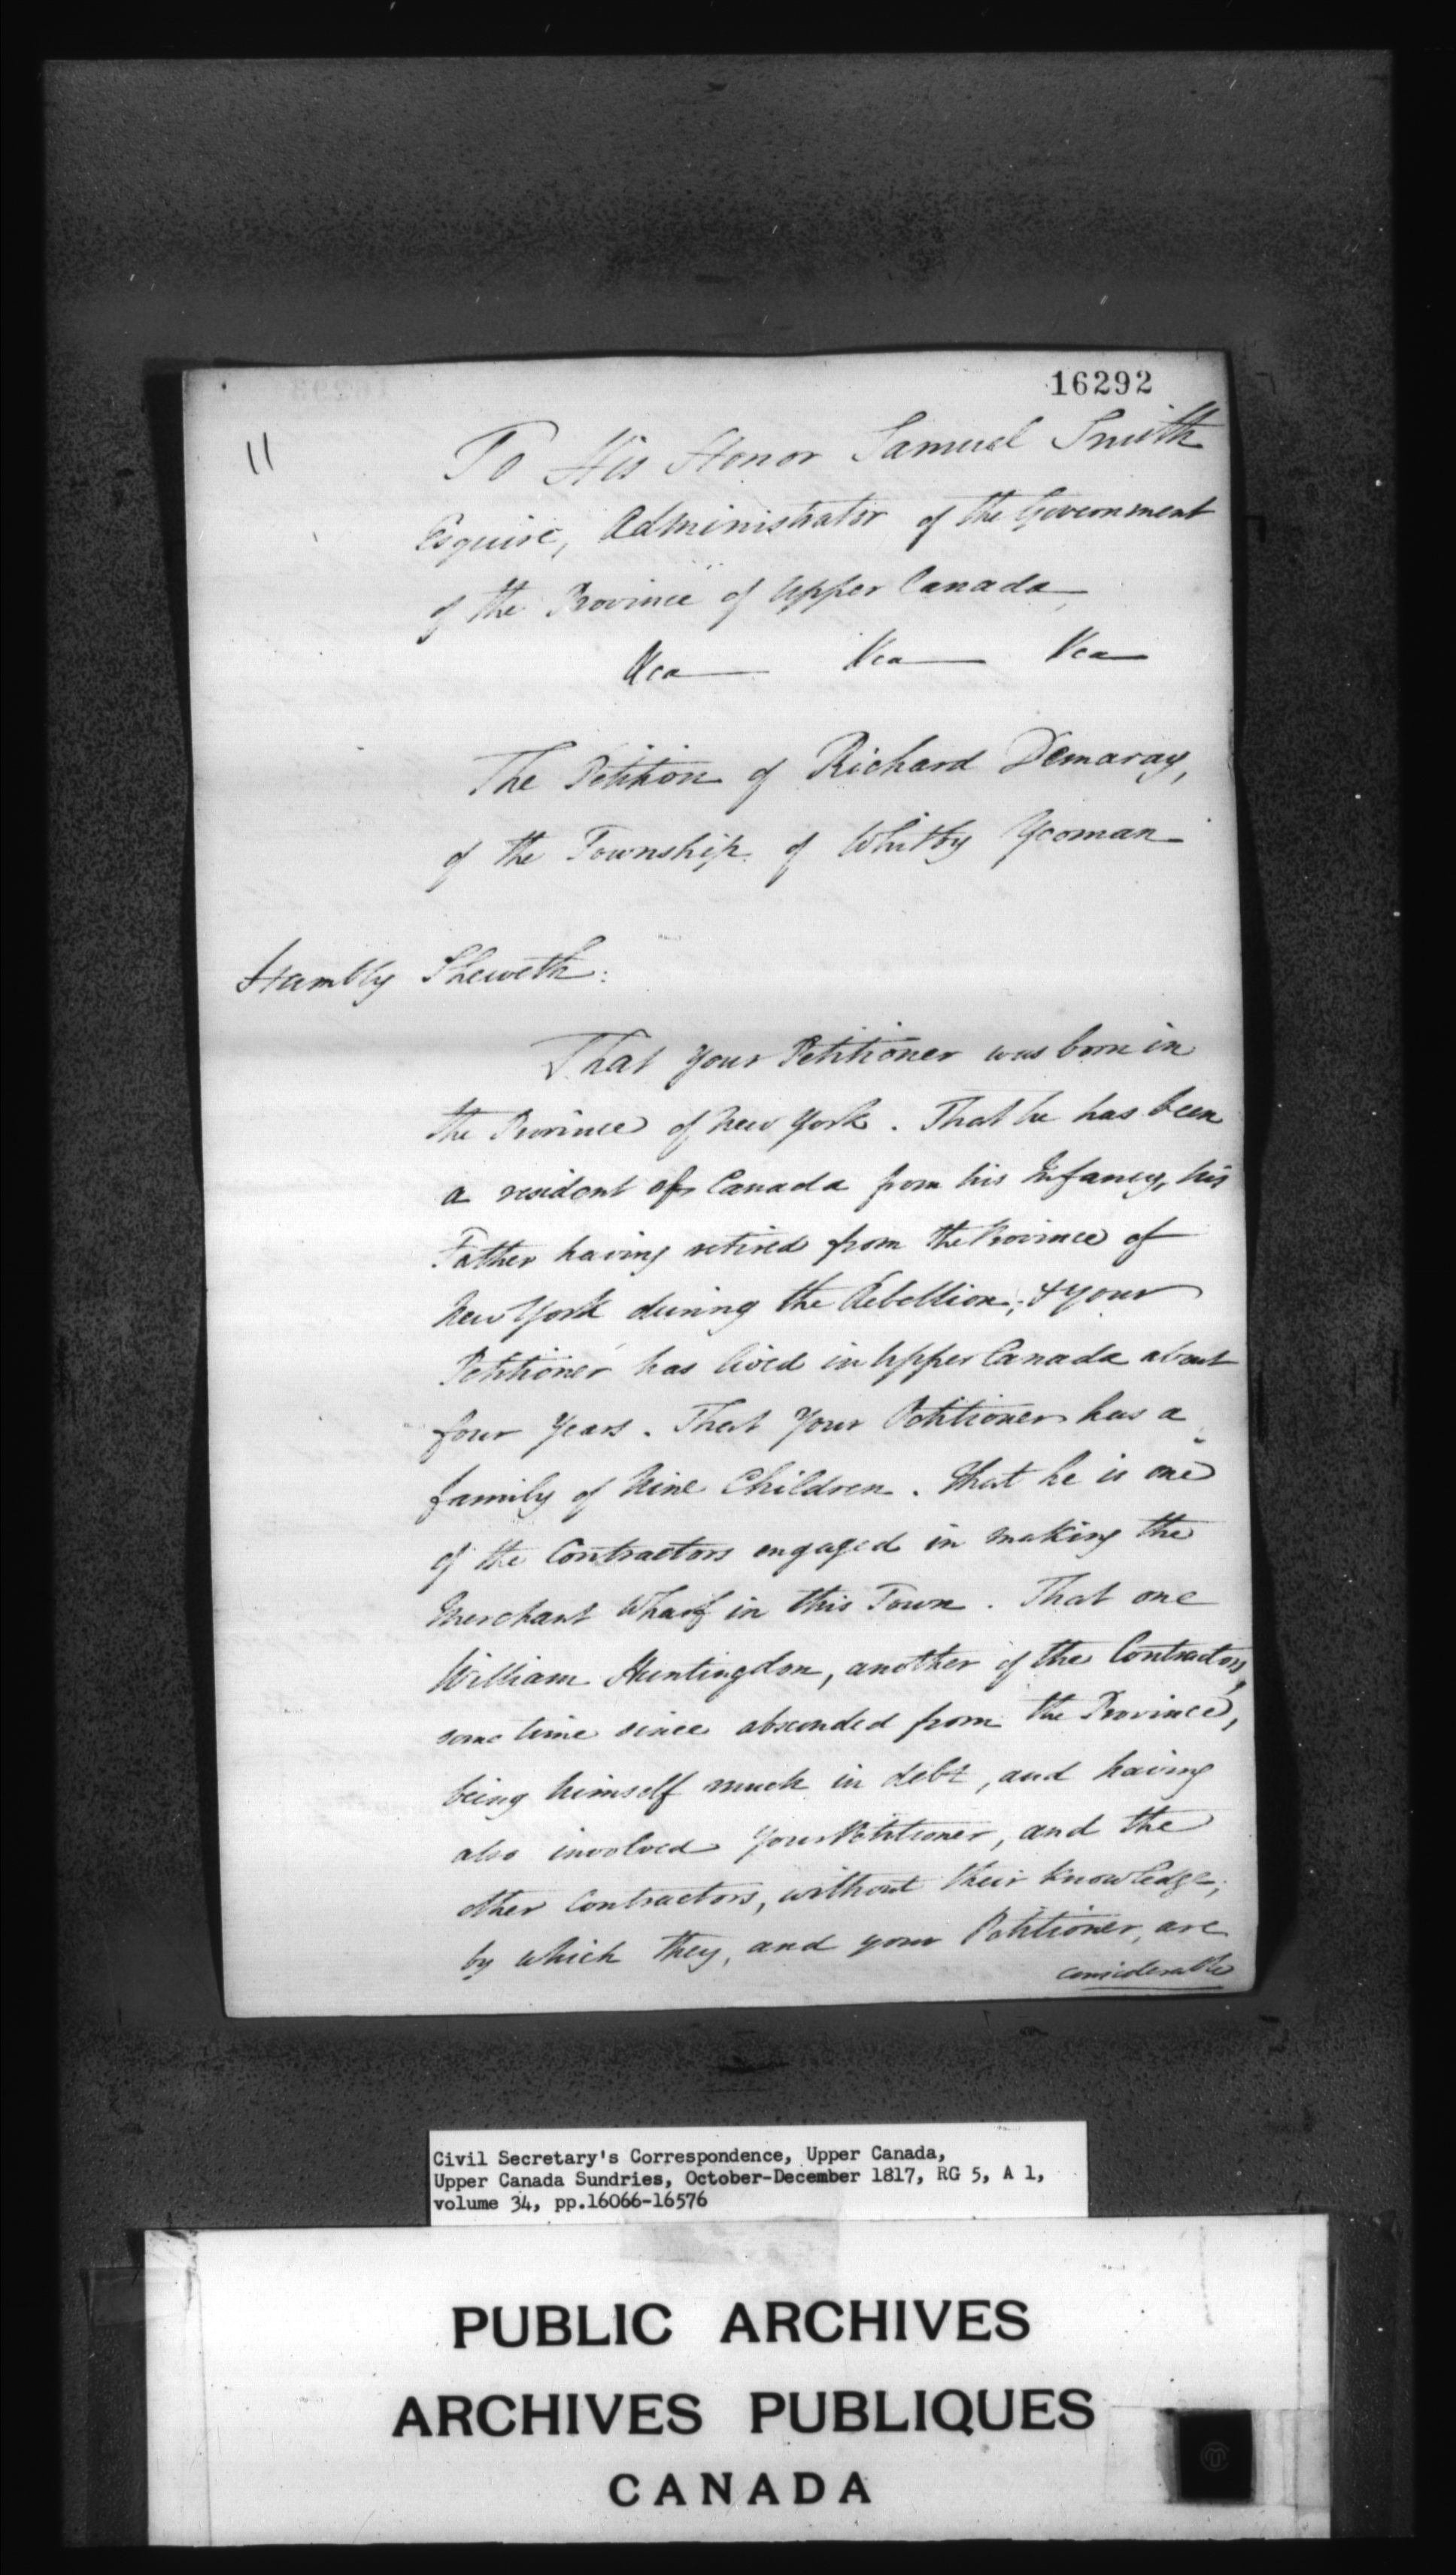 16292
11
To His Honor Samuel Smith
Esquire, Administrator of the Government
of the Province of Upper Canada,
&ca &ca &ca
The Petition of Richard Demaray,
of the Township of Whitby Yeoman
Humbly Sheweth:
That Your Petitioner was born in
the Province of New York. That he has been
a resident of Canada from his Infancy, his
Father having retired from the Province of
New York during the Rebellion; & your
Petitioner has lived in Upper Canada about
four Years. That Your Petitioner has a
family of Nine Children. That he is one
of the Contractors engaged in making the
Merchant Wharf in this Town. That one
William Huntingdon, another of the Contractors,
some time since absconded from the Province,
being himself much in debt, and having
also involved Your Petitioner, and the
other Contractors, without their knowledge;
by which they, and your Petitioner, are
considerable
Civil Secretary's Correspondence, Upper Canada,
Upper Canada Sundries, October-December 1817, RG 5, A 1,
volume 34, pp.16066-16576
PUBLIC ARCHIVES
ARCHIVES PUBLIQUES
CANADA